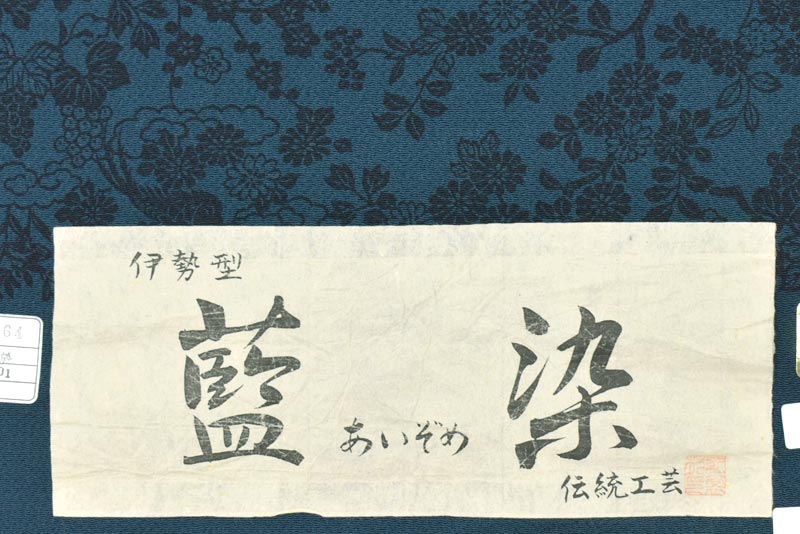 伊勢型
藍染
あいぞめ
伝統工芸
64
01